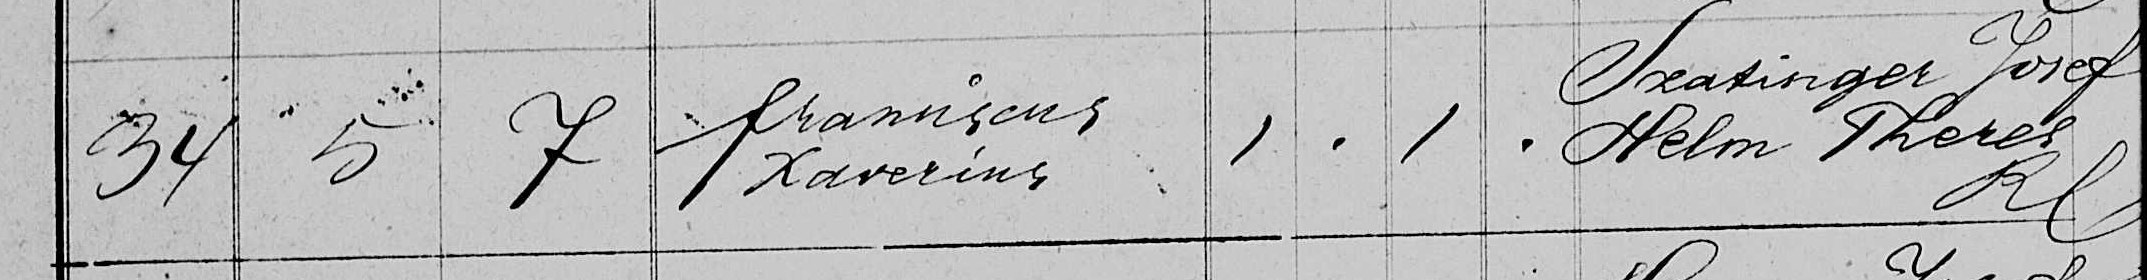 34 5 7 Franciscus 1 . 1 . Szatinger Josef
Xaverius Helm Theres
RC